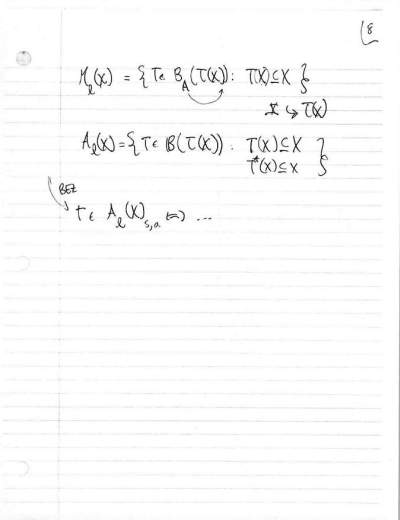 18
M_ℓ(X) = { T ∈ B_A(T(X)) : T(X) ⊆ X }
X ↪ T(X)
A_ℓ(X) = { T ∈ B(T(X)) : T(X) ⊆ X
T*(X) ⊆ X }
BEZ
T ∈ A_ℓ(X)_{s.a.} ⇔ ...